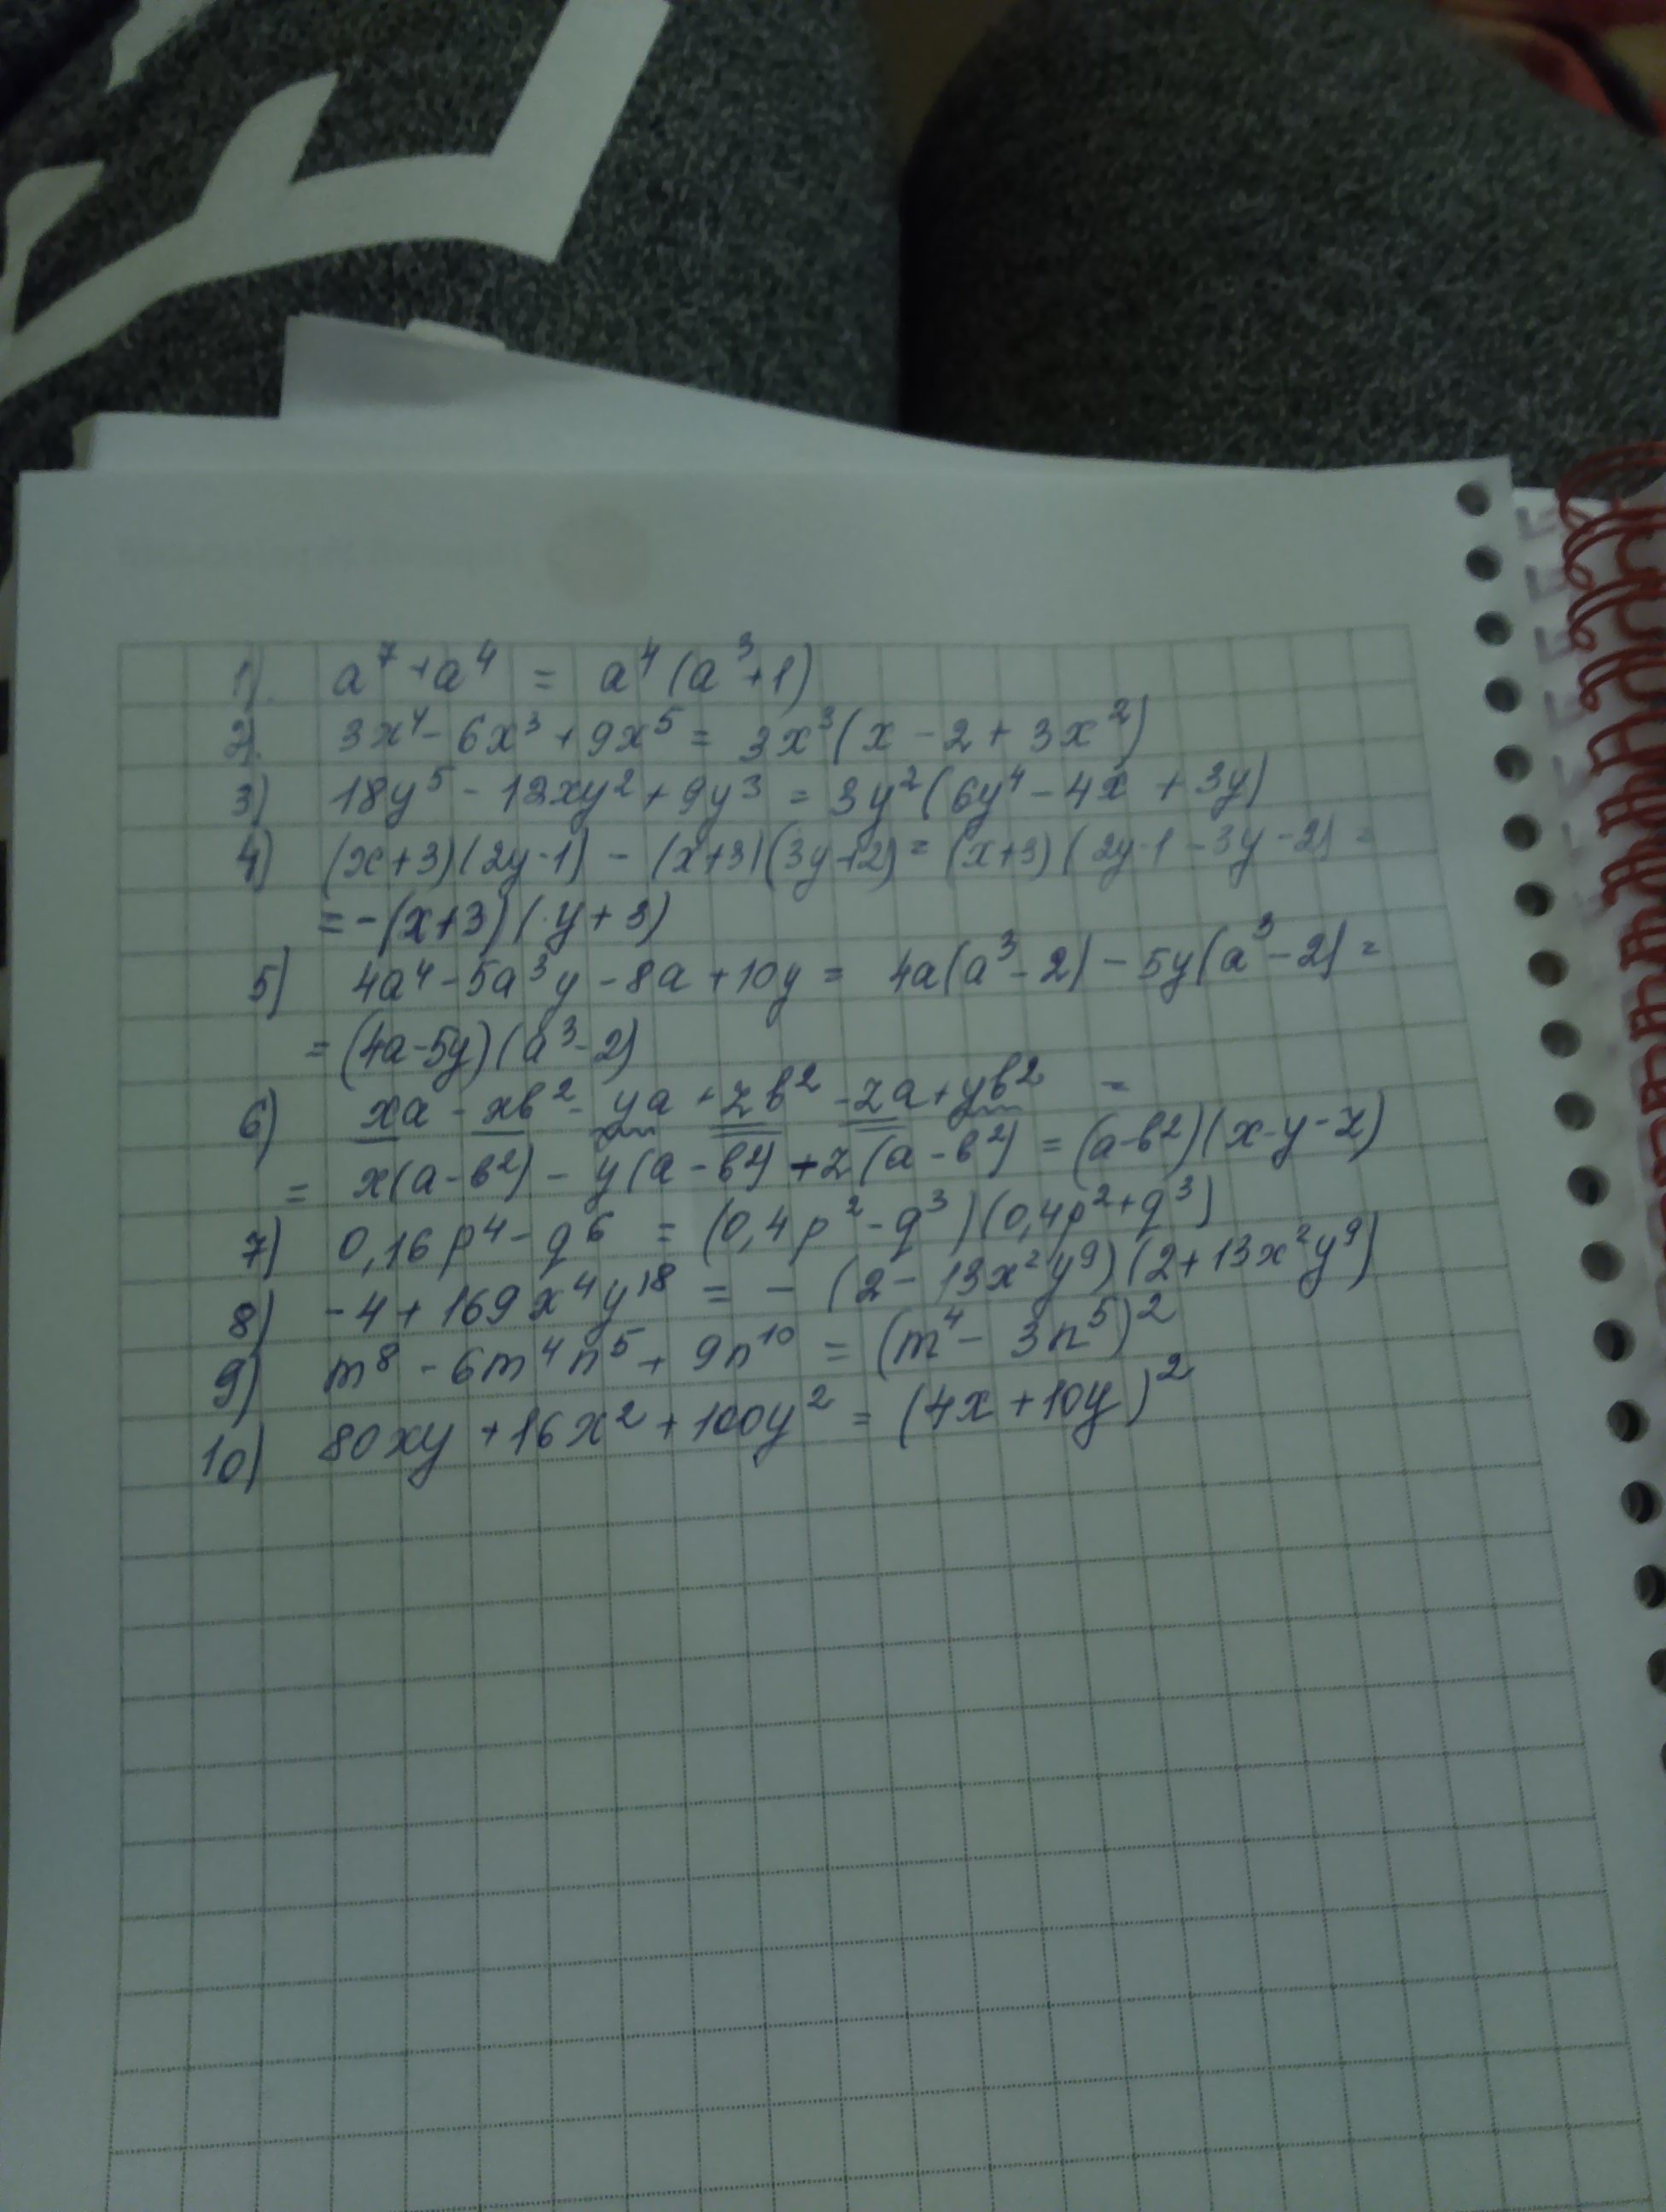 1) a⁷ + a⁴ = a⁴(a³+1)
2) 3x⁴ - 6x³ + 9x⁵ = 3x³(x - 2 + 3x²)
3) 18y⁵ - 12xy² + 9y³ = 3y²(6y⁴ - 4x + 3y)
4) (x+3)(2y-1) - (x+3)(3y+2) = (x+3)(2y-1-3y-2) =
= -(x+3)(y+3)
5) 4a⁴ - 5a³y - 8a + 10y = 4a(a³-2) - 5y(a³-2) =
= (4a-5y)(a³-2)
6) xa - xb² - ya + zb² - za + yb² =
= x(a-b²) - y(a-b²) - z(a-b²) = (a-b²)(x-y-z)
7) 0,16p⁴ - q⁶ = (0,4p² - q³)(0,4p² + q³)
8) -4 + 169x⁴y¹⁸ = - (2 - 13x²y⁹)(2 + 13x²y⁹)
9) m⁸ - 6m⁴n⁵ + 9n¹⁰ = (m⁴ - 3n⁵)²
10) 80xy + 16x² + 100y² = (4x + 10y)²